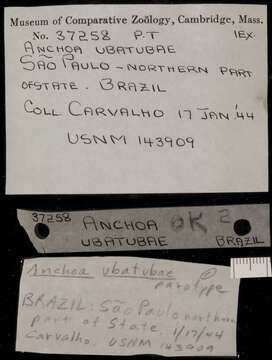 Museum of Comparative Zoölogy, Cambridge, Mass.
No. 37258 P.T 1Ex.
ANCHOA UBATUBAE
SÃO PAULO - NORTHERN PART
OF STATE. BRAZIL
COLL CARVALHO 17 JAN '44
USNM 143909
37258 ANCHOA OK 2
UBATUBAE BRAZIL
Anchoa ubatubae
paratype
BRAZIL: São Paulo northern
part of State. 1/17/44
Carvalho. USNM 143909